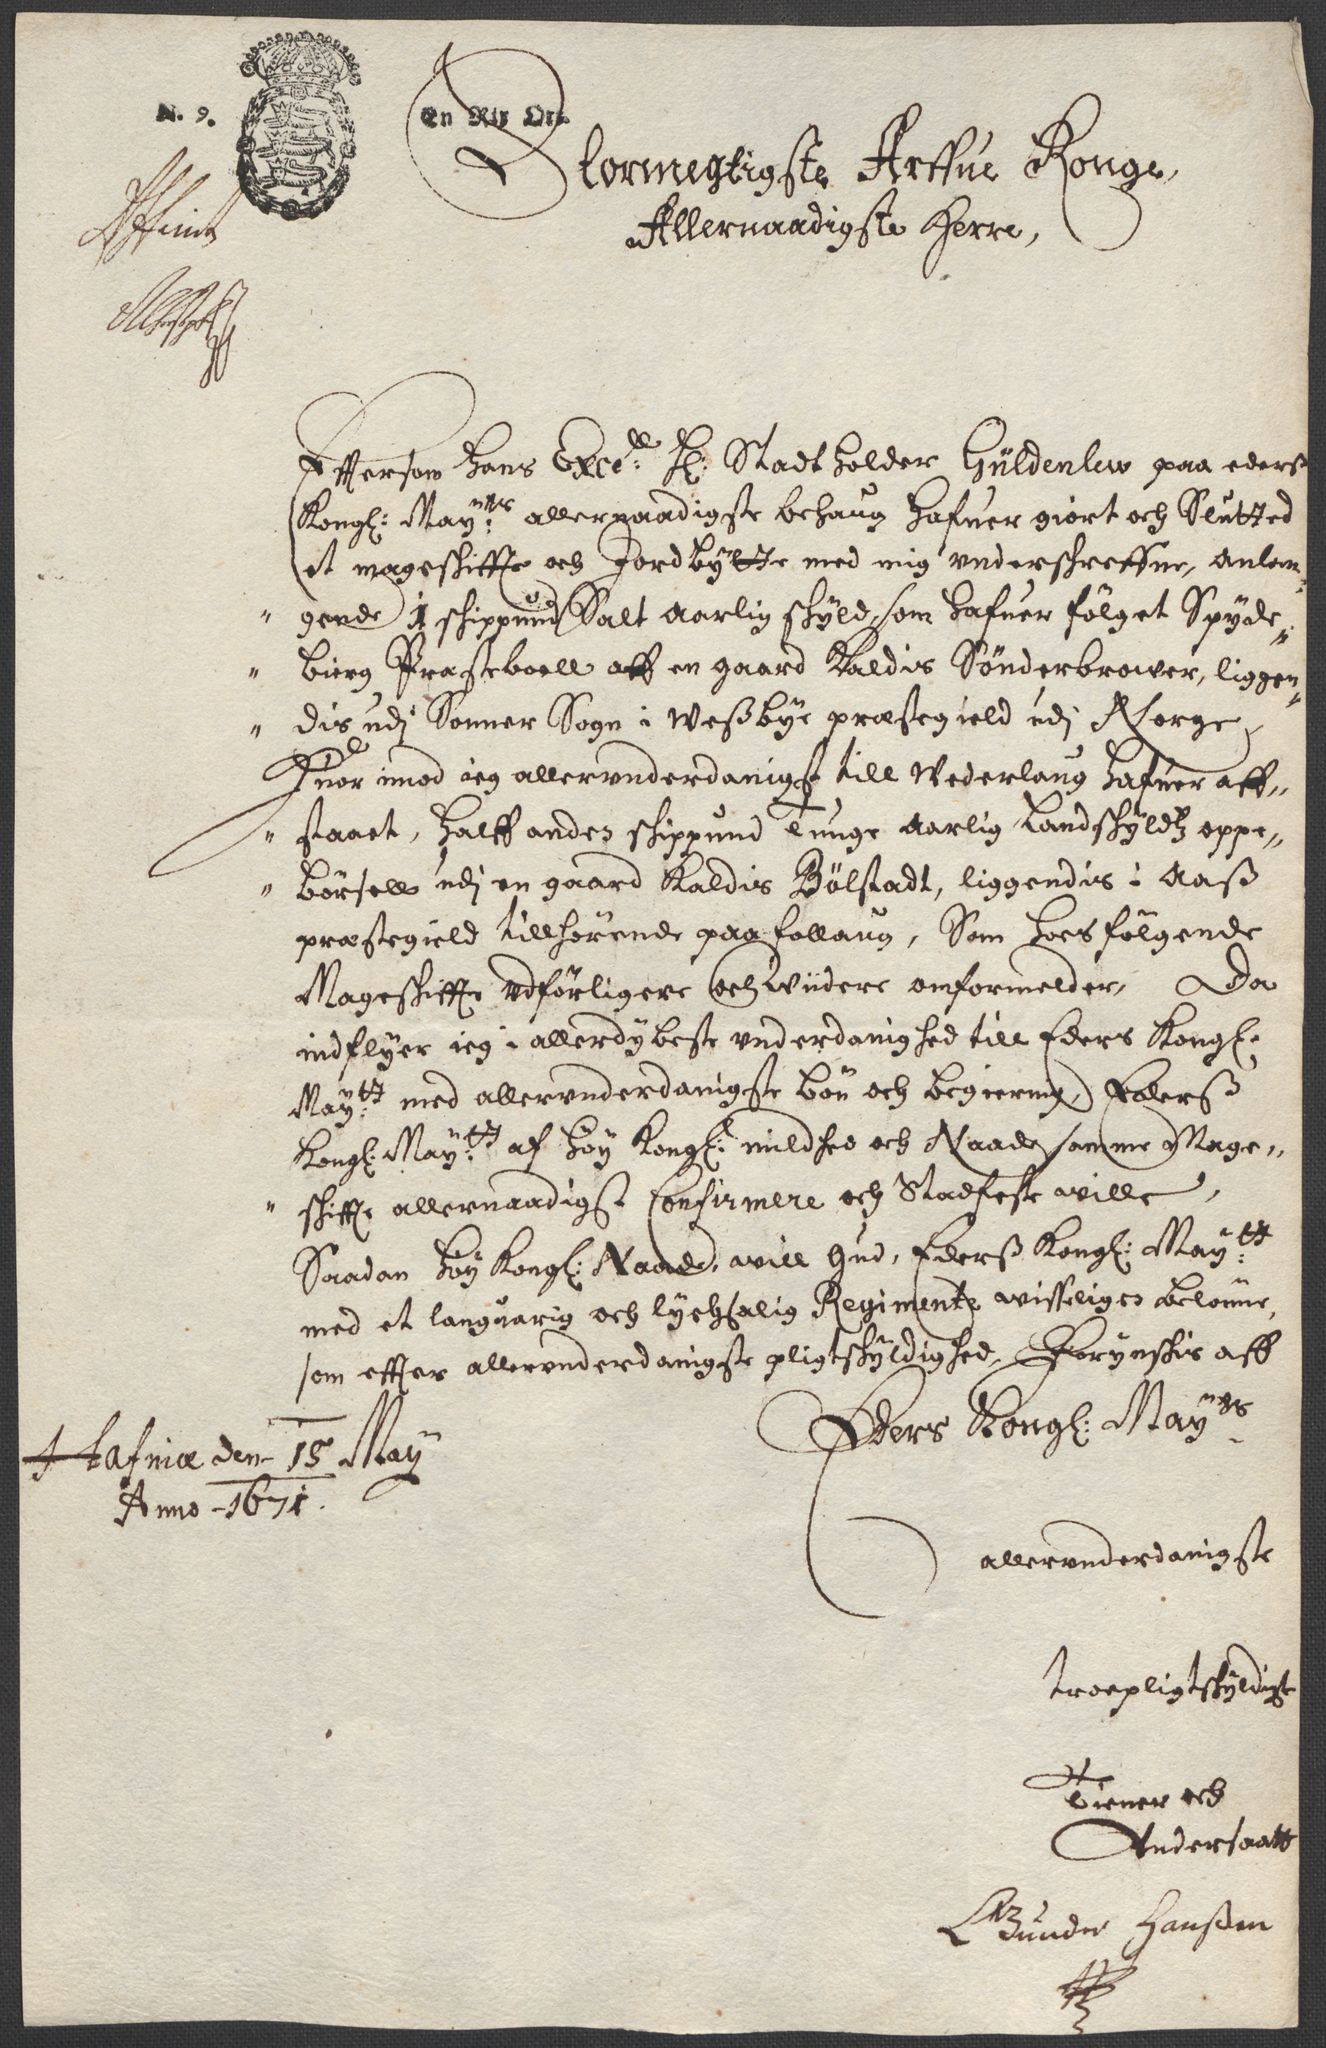 N. 9.
En Rix Ort
Stormegtigste Arffue Konge,
Allernaadigste Herre,
Efftersom Hans Excell: H: Stadtholder Güldenlew paa eders
Kongl: Mayts: allernaadigste behaug hafuer giort och Slutted
et mageskiffte och Jordbytte med mig underschreffne, anlan-
gende 1 schippund Salt aarlig skyld, som hafuer fölget Spyde-
bierg Præsteboell aff en gaard kaldis Sönderbrower, liggen-
dis udj Sonner Sogn i Wessbye præstegield udj Norge,
Huor imod ieg allerunderdanigst till Wederlaug hafuer aff-
staaet, halff anden schippund Tunge aarlig Landskyldtz oppe-
börsell udj en gaard kaldis Bölstadt, liggendis i Aass
præstegield tillhörende paa follaug, Som hoesfölgende
Mageskiffte udförligere och widere omformelder, Da
indflyer ieg i allerdybeste underdanighed till Eders Kongl:
Maytt: med allerunderdanigste bön och begiering, Ederss
Kongl: Maytt: af höy Kongl: mildhed och Naade samme Mage-
skiffte allernaadigst Confirmere och Stadfeste wille,
Saadan höy Kongl: Naade, will Gud, Ederss Kongl: Maytt:
med et languarig och lychsalig Regimente wisseligen belönne,
som effter allerunderdanigste pligtskyldighed, Forynskis aff
Eders Kongl: Mayts
Hafniæ den 15 May
Anno 1671.
allerunderdanigste
troepligtskyldigste
Tiener och
Undersaatt
Hanssen